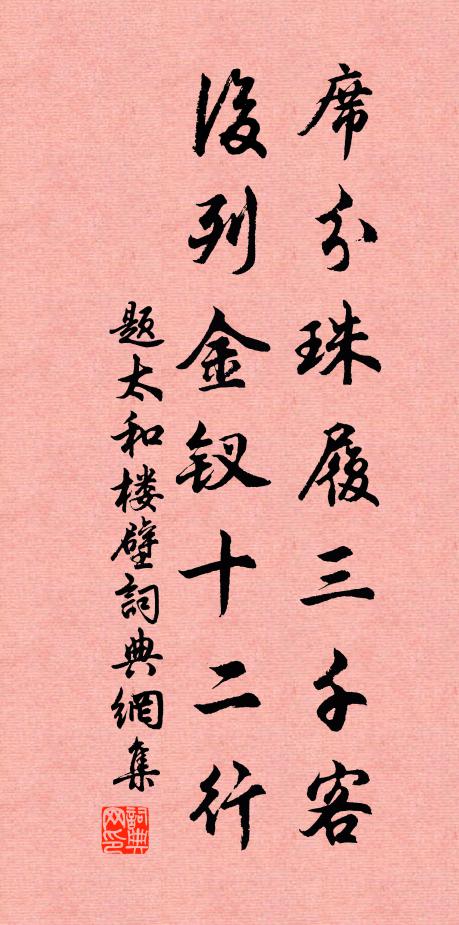 席分珠履三千客
後列金钗十二行
题太和楼壁詞典網集
詞典网印